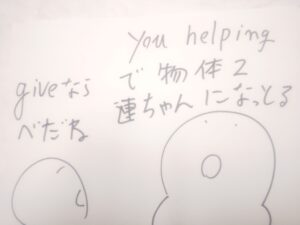 giveなら
べだね
you helping
で物体2
連ちゃんになっとる